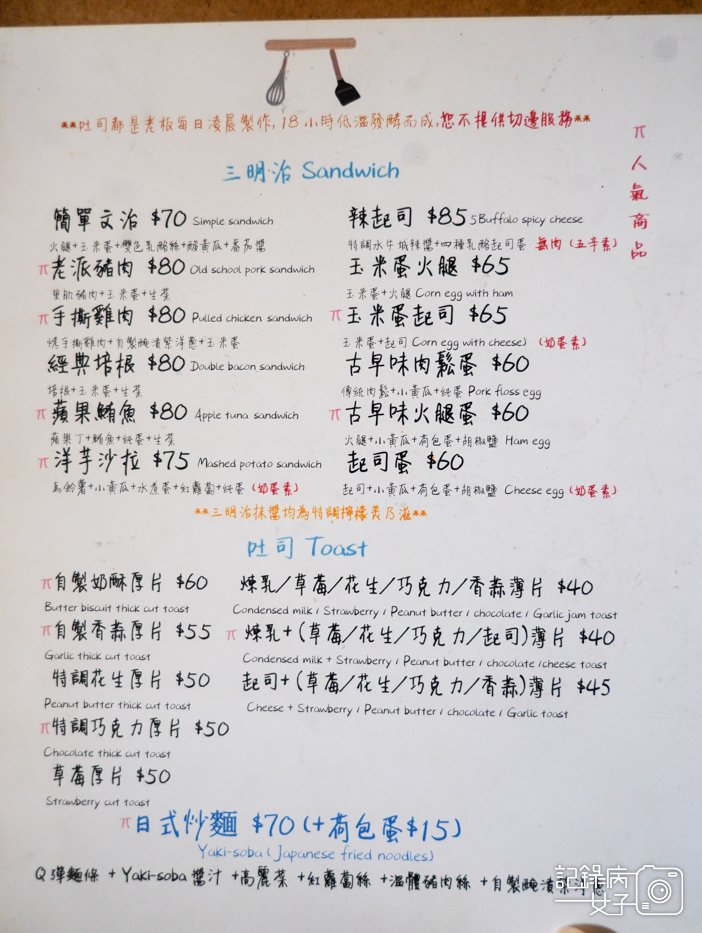 **吐司都是老板每日凌晨製作, 18小時低溫發酵而成,恕不提供切邊服務**
π人氣商品
三明治 Sandwich
簡單文治 $70 Simple sandwich
火腿+玉米蛋+雙色乳酪絲+酸黃瓜+番茄醬
π老派豬肉 $80 Old school pork sandwich
里肌豬肉+玉米蛋+生菜
π手撕雞肉 $80 Pulled chicken sandwich
烤手撕雞肉+自製醃漬紫洋蔥+玉米蛋
經典培根 $80 Double bacon sandwich
培根+玉米蛋+生菜
π蘋果鮪魚 $80 Apple tuna sandwich
蘋果丁+鮪魚+純蛋+生菜
π洋芋沙拉 $75 Mashed potato sandwich
馬鈴薯+小黃瓜+水煮蛋+紅蘿蔔+純蛋 (奶蛋素)
辣起司 $85 5 Buffalo spicy cheese
特調水牛城辣醬+四種乳酪起司蛋 無肉 (五辛素)
玉米蛋火腿 $65
玉米蛋+火腿 Corn egg with ham
π玉米蛋起司 $65
玉米蛋+起司 Corn egg with cheese) (奶蛋素)
古早味肉鬆蛋 $60
傳統肉鬆+小黃瓜+純蛋 Pork floss egg
π古早味火腿蛋 $60
火腿+小黃瓜+荷包蛋+胡椒鹽 Ham egg
起司蛋 $60
起司+小黃瓜+荷包蛋+胡椒鹽 Cheese egg (奶蛋素)
**三明治抹醬均為特調檸檬美乃滋**
吐司 Toast
π自製奶酥厚片 $60
Butter biscuit thick cut toast
π自製香蒜厚片 $55
Garlic thick cut toast
特調花生厚片 $50
Peanut butter thick cut toast
π特調巧克力厚片 $50
Chocolate thick cut toast
草莓厚片 $50
Strawberry cut toast
煉乳/草莓/花生/巧克力/香蒜薄片 $40
Condensed milk / Strawberry / Peanut butter / chocolate / Garlic jam toast
π 煉乳+(草莓/花生/巧克力/起司)薄片 $40
Condensed milk + Strawberry / Peanut butter / chocolate /cheese toast
起司+(草莓/花生/巧克力/香蒜)薄片 $45
Cheese + Strawberry / Peanut butter / chocolate / Garlic toast
π日式炒麵 $70 (+荷包蛋$15)
Yaki-soba (Japanese fried noodles)
Q彈麵條 + Yaki-soba 醬汁 +高麗菜 +紅蘿蔔絲 +溫體豬肉絲 +自製醃漬
記錄病女子